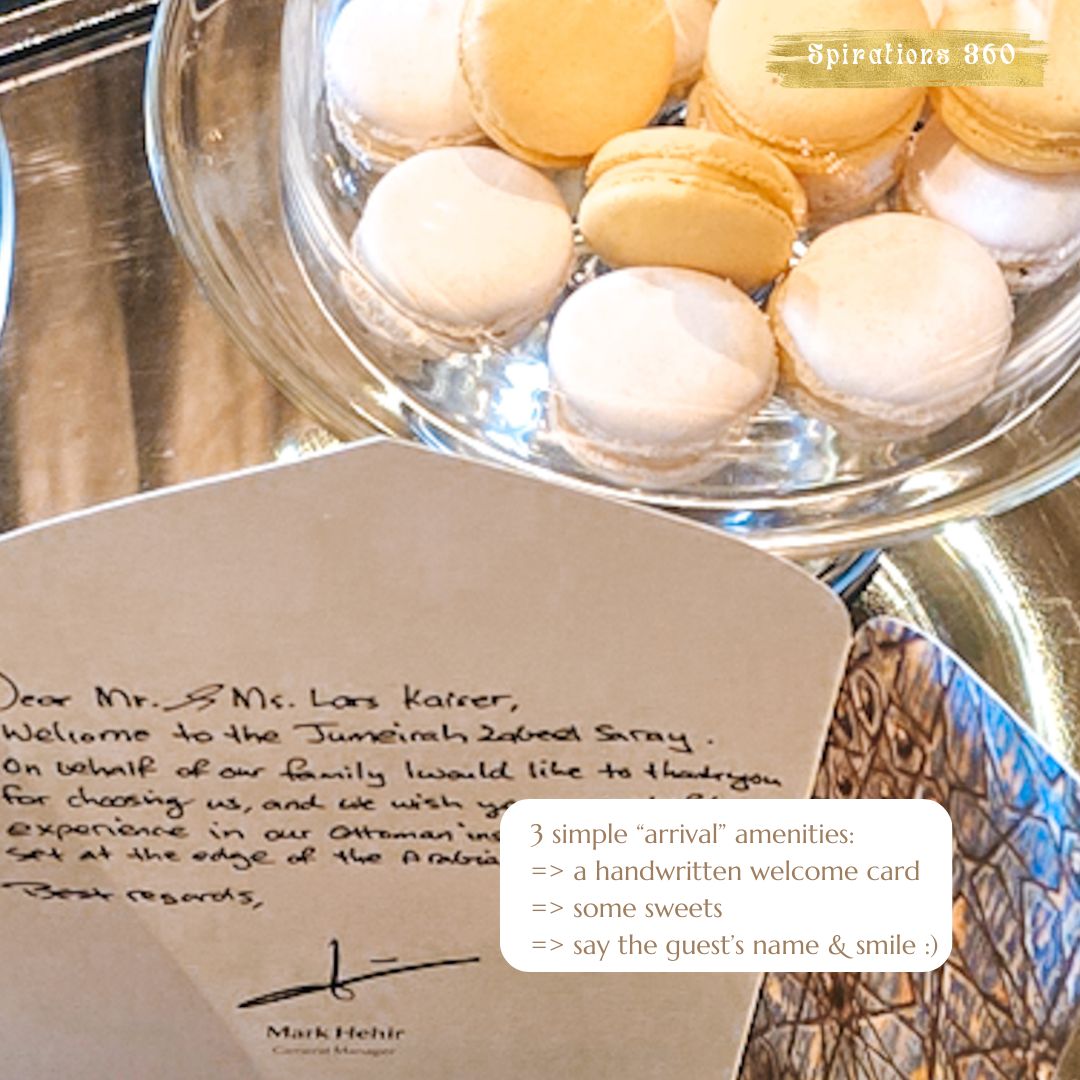 Spirations 360
Dear Mr. & Ms. Lars Kaiser,
Welcome to the Jumeirah Zabeel Saray.
On behalf of our family I would like to thank you
for choosing us, and we wish
experience in our Ottoman
set at the edge of the
Best regards,
Mark Hehir
General Manager
3 simple “arrival” amenities:
=> a handwritten welcome card
=> some sweets
=> say the guest’s name & smile :)